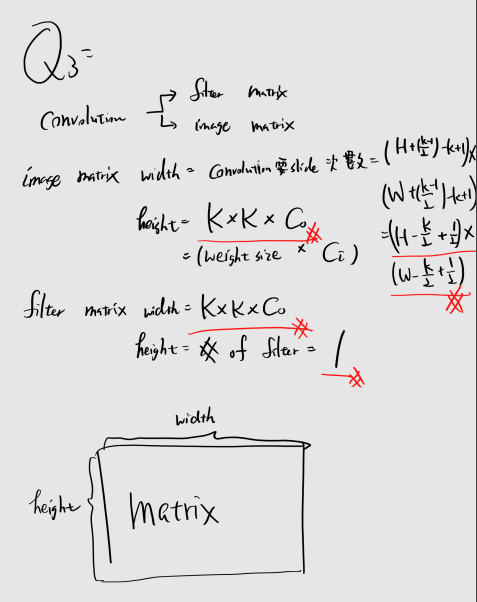 Q3=
Convolution → filter matrix
↳ image matrix
image matrix width = Convolution 要 slide 次數 = (H+(\frac{k-1}{2})-k+1)x
(W+(\frac{k-1}{2})-k+1)
=(H-\frac{k}{2}+\frac{1}{2})x
(W-\frac{k}{2}+\frac{1}{2})
height = K×K×Co
= (weight size × Ci)
filter matrix width = K×K×Co
height = # of filter = 1
width
height
matrix